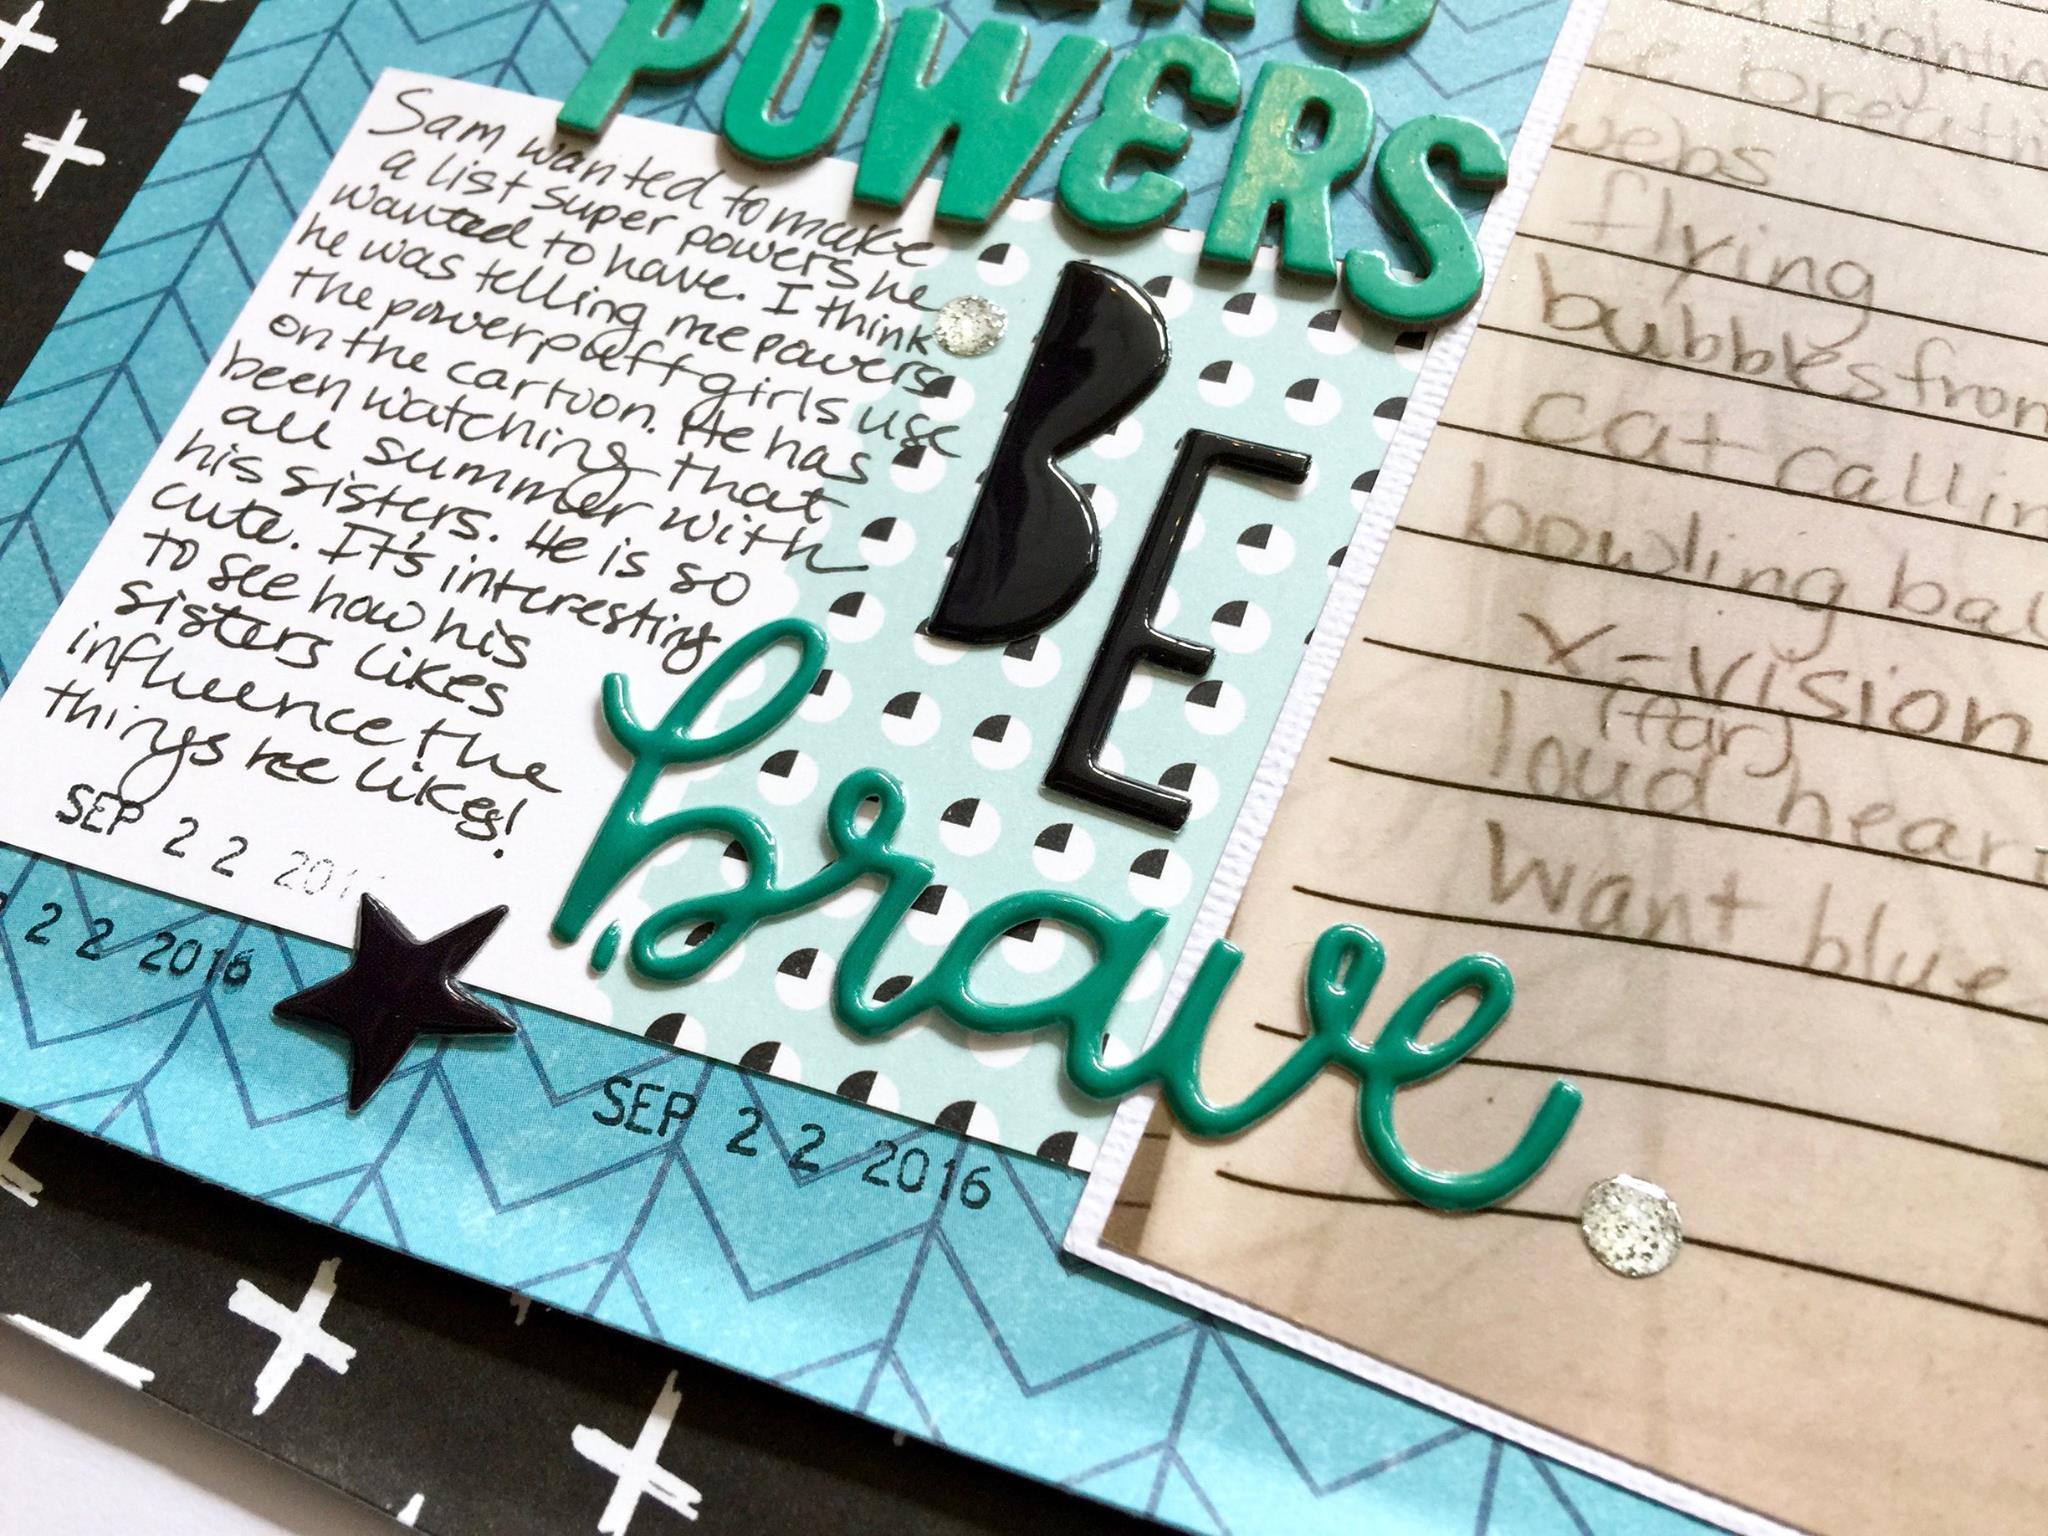 POWERS
Sam wanted to make
a list super powers he
wanted to have. I think
he was telling me powers
the powerpuff girls use
on the cartoon. He has
been watching that
all summer with
his sisters. He is so
cute. It's interesting
to see how his
sisters likes
influence the
things he likes!
SEP 22
22 2016
SEP 22 2016
BE
brave
webs
flying
bubbles
cat
bowling
x-vision
(far)
loud
want blue